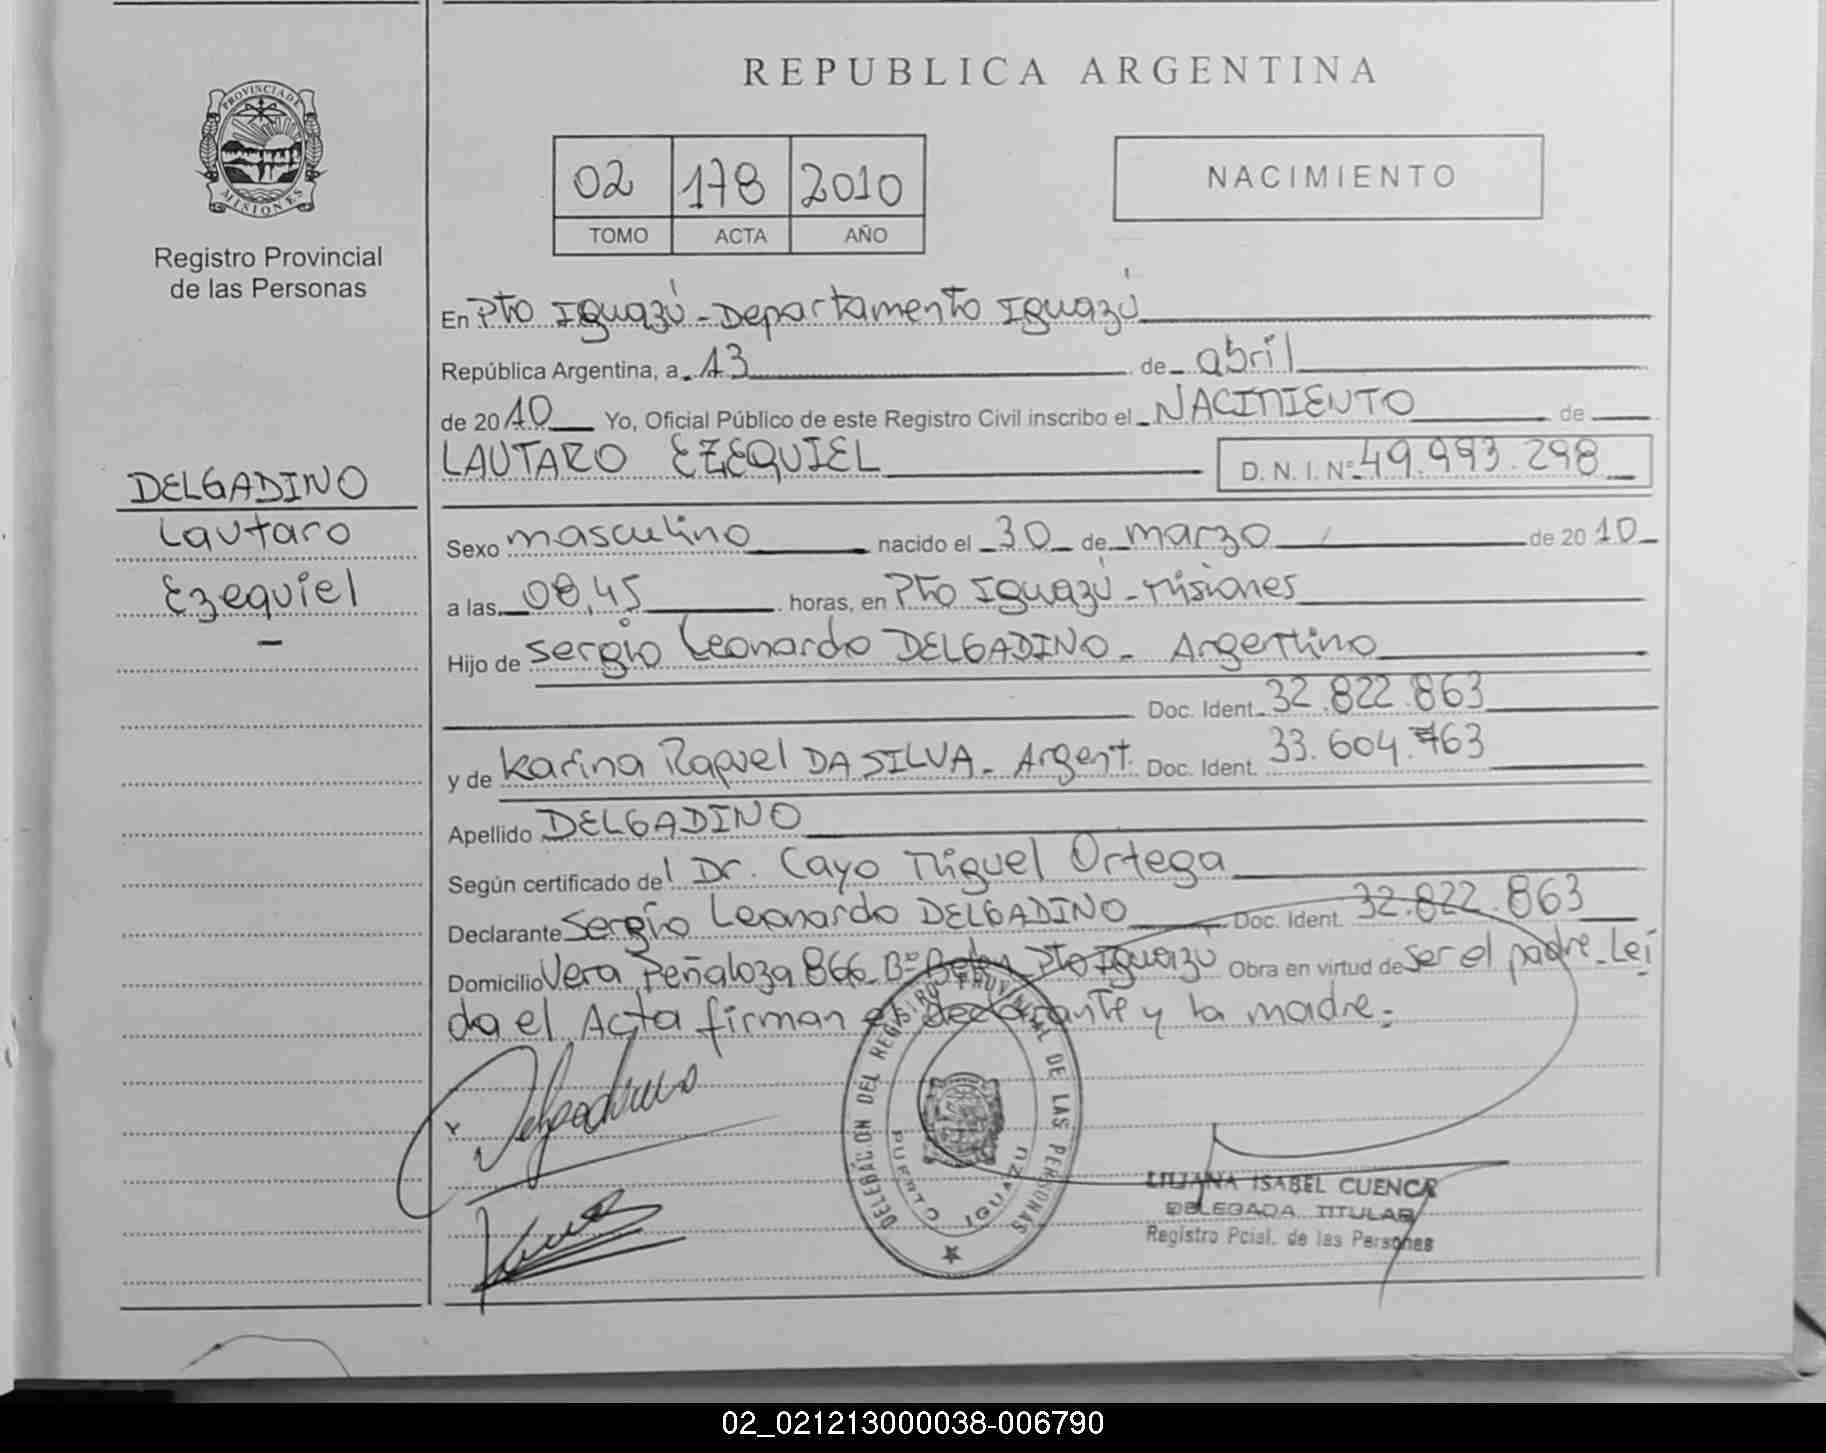 REPUBLICA ARGENTINA
PROVINCIA DE
MISIONES
Registro Provincial
de las Personas
02 178 2010
TOMO ACTA AÑO
NACIMIENTO
En Pto Iguazú - Departamento Iguazú
República Argentina, a 13 de abril
de 2010 Yo, Oficial Público de este Registro Civil inscribo el NACIMIENTO de
LAUTARO EZEQUIEL D. N. I. Nº 49.993.298
DELGADINO
Lautaro
Ezequiel
-
Sexo masculino nacido el 30 de marzo de 2010
a las 08,45 horas, en Pto Iguazú - Misiones
Hijo de Sergio Leonardo DELGADINO - Argentino
Doc. Ident. 32.822.863
y de Karina Raquel DA SILVA - Argent. Doc. Ident. 33.604.763
Apellido DELGADINO
Según certificado del Dr. Cayo Miguel Ortega
Declarante Sergio Leonardo DELGADINO Doc. Ident. 32.822.863
Domicilio Vera Peñaloza 866 Bº Belen Pto Iguazú Obra en virtud de ser el padre - Leí
da el Acta firman el declarante y la madre.-
Delgadino
DELEGACION DEL REGISTRO PROVINCIAL DE LAS PERSONAS
PUERTO IGUAZU
LILIANA ISABEL CUENCA
DELEGADA TITULAR
Registro Pcial. de las Personas
02_021213000038-006790